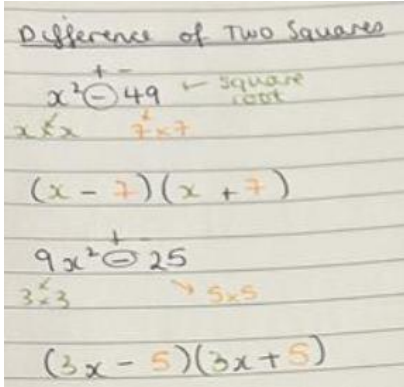 Difference of Two Squares
+ -
x² - 49 ← square root
x × x 7 × 7
(x - 7)(x + 7)
+ -
9x² - 25
3 × 3 → 5 × 5
(3x - 5)(3x + 5)